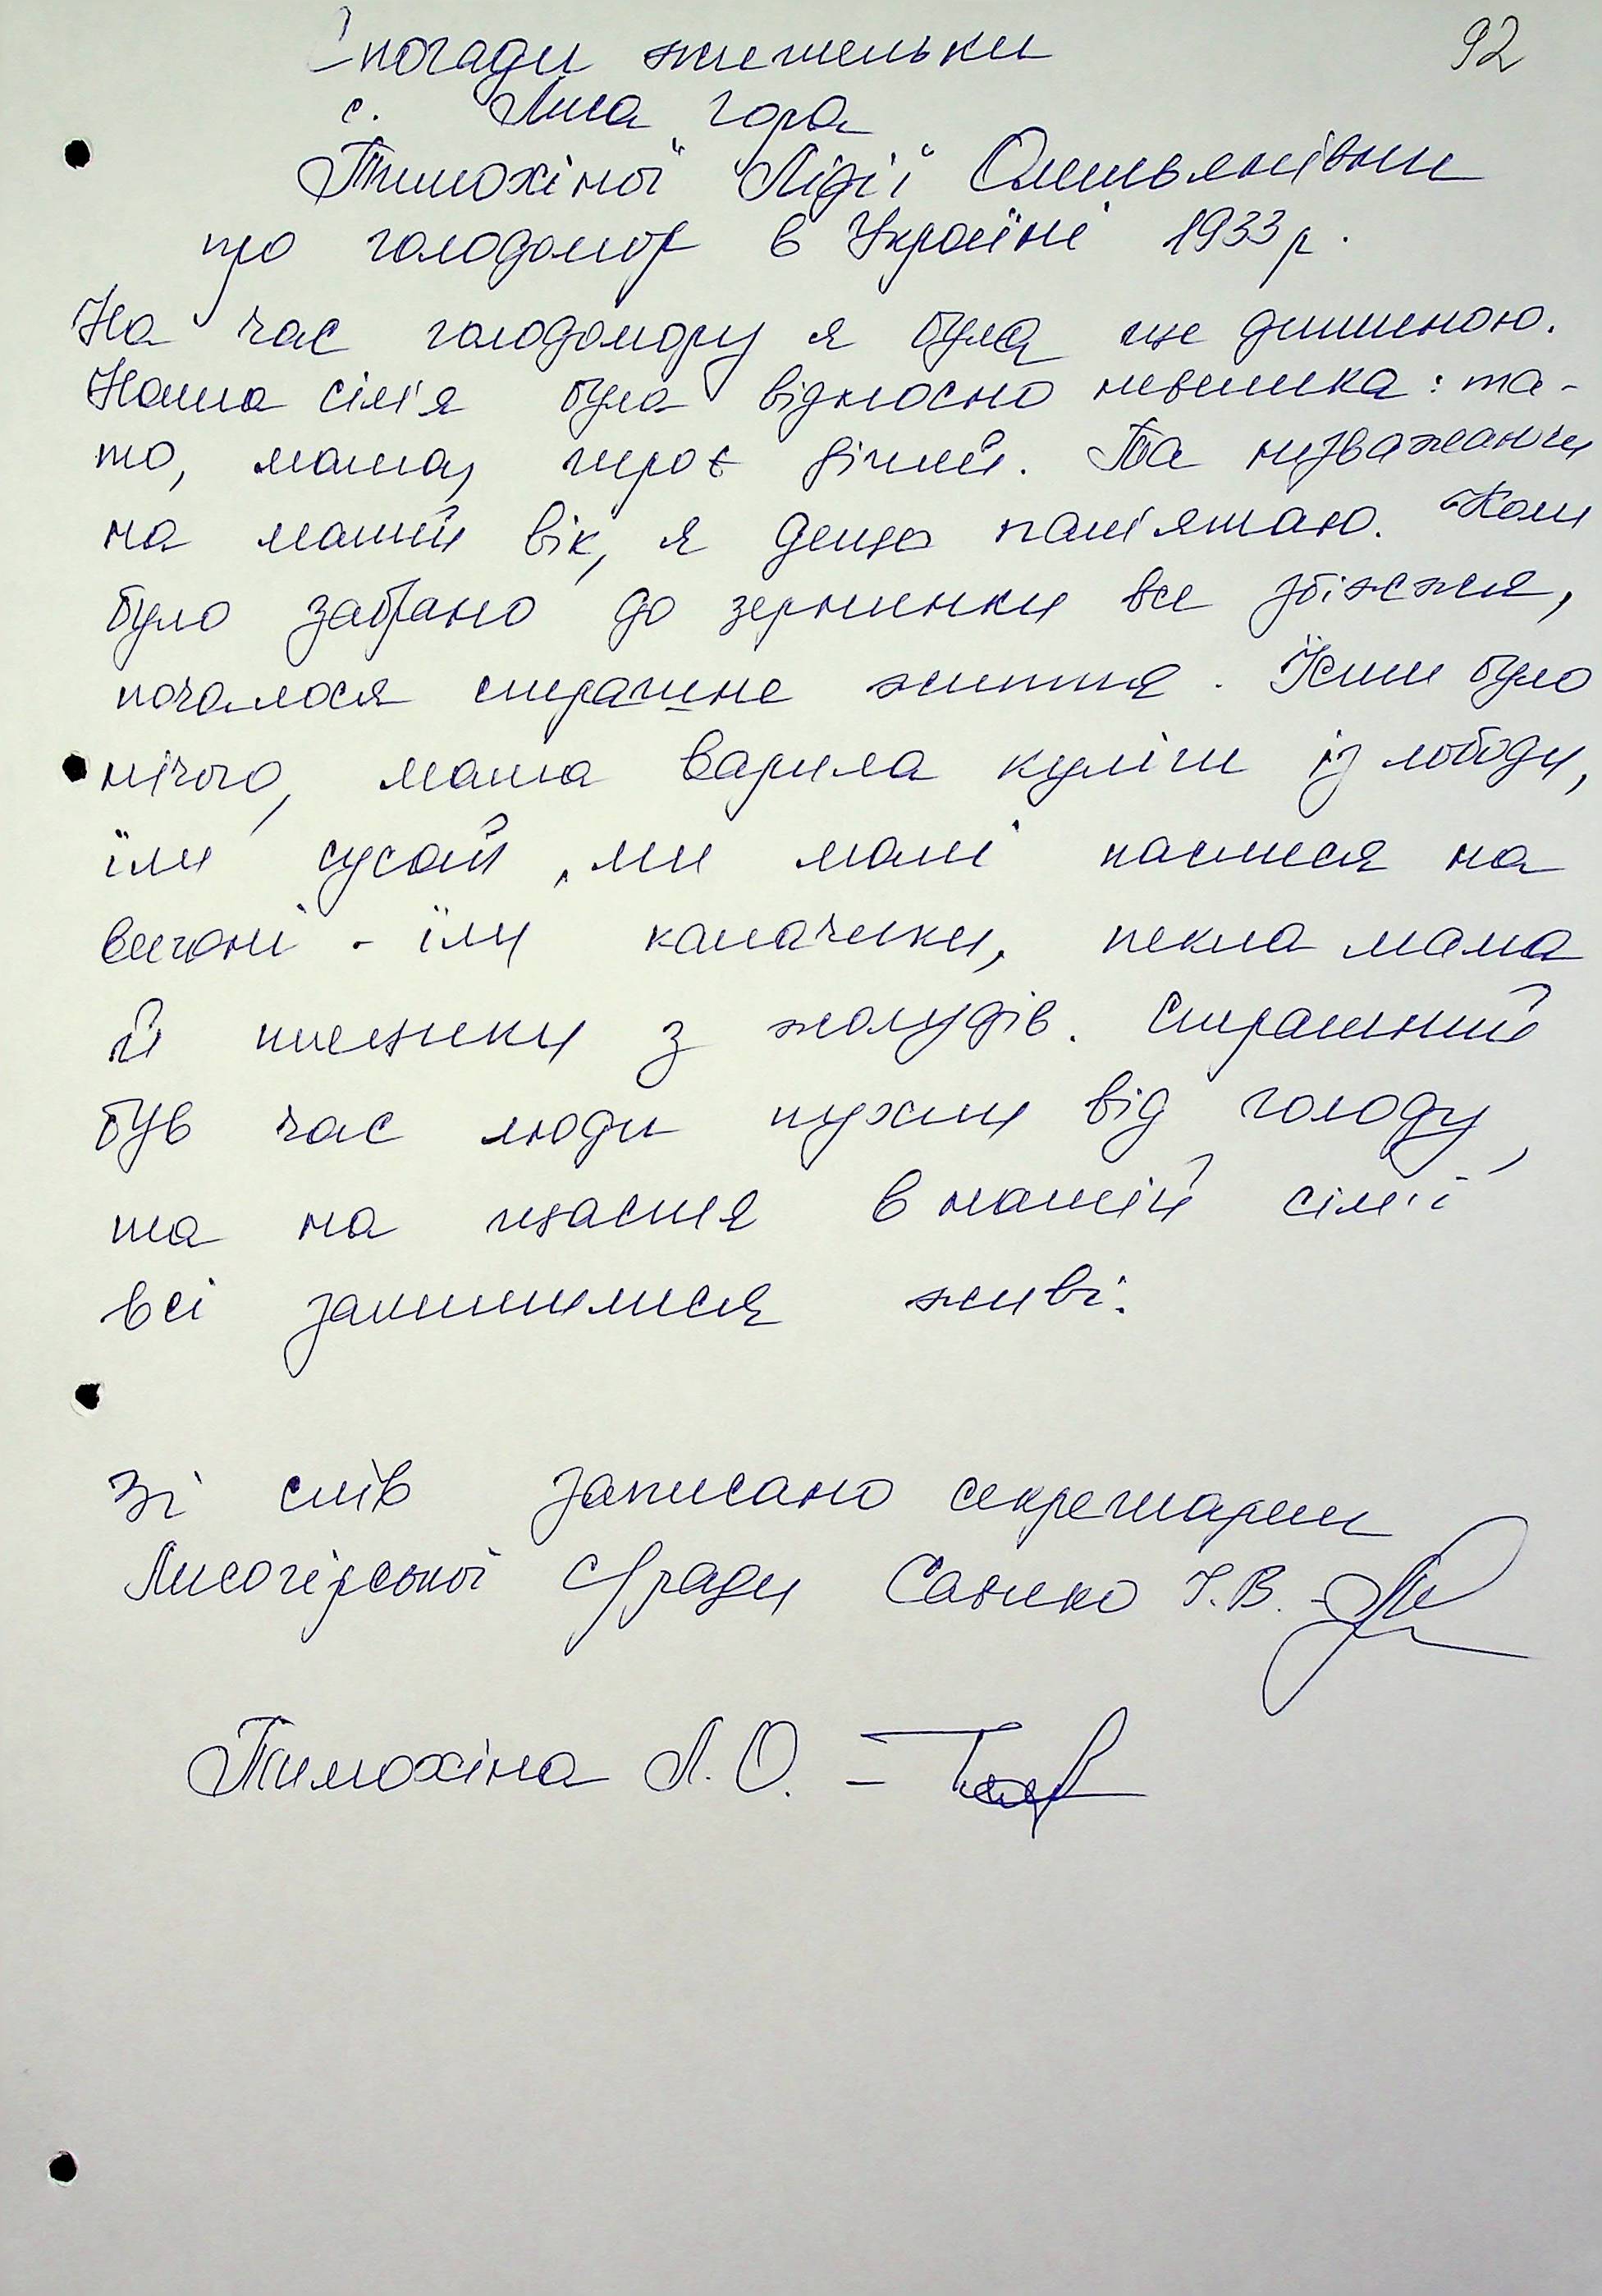 92
Спогади жительки
с. Лиса Гора
Тимохіної Лідії Омельянівни
про голодомор в Україні 1933 р.
На час голодомору я була ще дитиною.
Наша сім'я була відносно невелика: та-
то, мама, троє дітей. Та незважаючи
на малий вік, я дещо пам'ятаю. Коли
було забрано до зернинки все збіжжя,
почалося страшне життя. Їсти було
нічого, мама варила куліш із лободи,
їли сусай, ми малі паслися на
вигоні - їли калачики, пекла мама
й пляцики з жолудів. Страшний
був час люди пухли від голоду,
та на щастя в нашій сім'ї
всі залишилися живі.
Зі слів записано секретарем
Лисогірської с/ради І.В.
Тимохіна Л.О. –